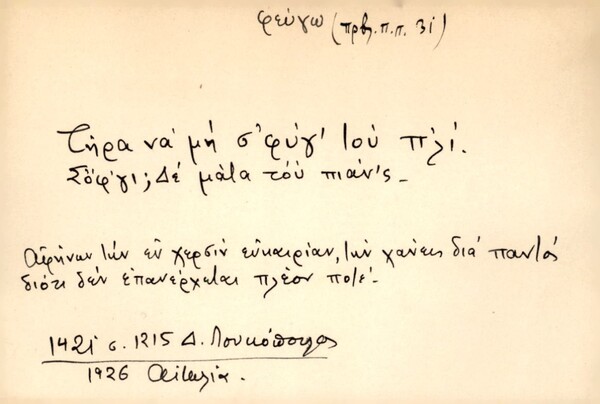 φεύγω (πρβλ. π.π. 3i)
Τήρα νά μή σ' φύγ' τού π'λί.
Σὄφ'γι; Δέ μάτα τού πιάν'ς _
Ἀφήνων τήν ἐν χερσίν εὐκαιρίαν, τήν χάνεις διά παντός
διότι δέν ἐπανέρχεται πλέον ποτέ. -
1421 σ. 1215 Δ. Λουκόπουλος
1926 Αἰτωλία.